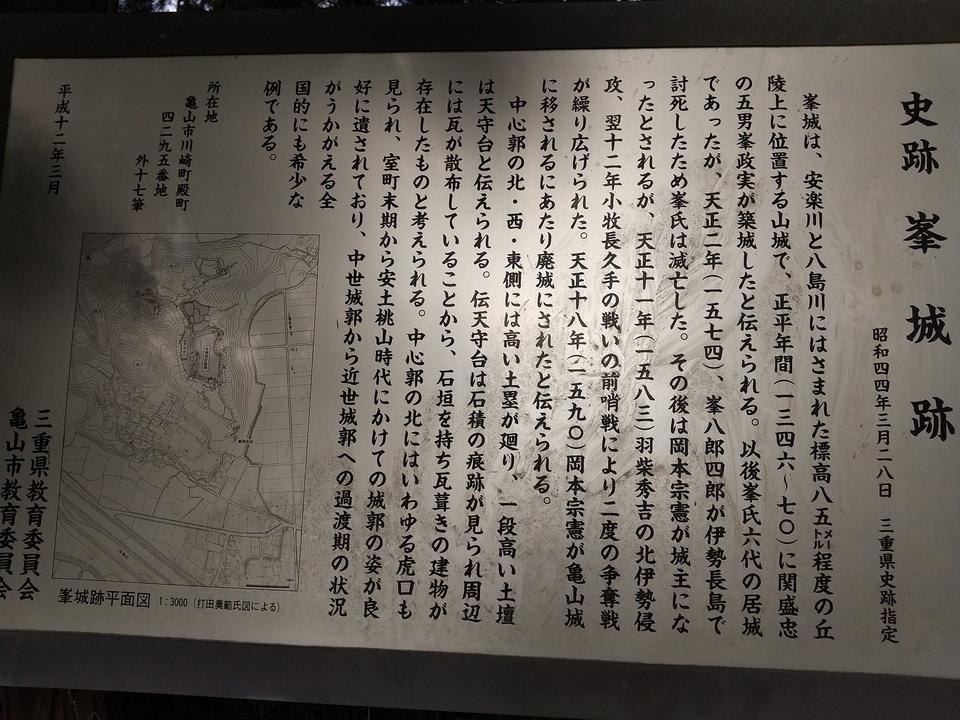 史跡 峯城跡
昭和四四年三月二八日 三重県史跡指定
峯城は、安楽川と八島川にはさまれた標高八五メートル程度の丘
陵上に位置する山城で、正平年間(一三四六〜七〇)に関盛忠
の五男峯政実が築城したと伝えられる。以後峯氏六代の居城
であったが、天正二年(一五七四)、峯八郎四郎が伊勢長島で
討死したため峯氏は滅亡した。その後は岡本宗憲が城主にな
ったとされるが、天正十一年(一五八三)羽柴秀吉の北伊勢侵
攻、翌十二年小牧長久手の戦いの前哨戦により二度の争奪戦
が繰り広げられた。天正十八年(一五九〇)岡本宗憲が亀山城
に移されるにあたり廃城にされたと伝えられる。
中心郭の北・西・東側には高い土塁が廻り、一段高い土壇
は天守台と伝えられる。伝天守台は石積の痕跡が見られ周辺
には瓦が散布していることから、石垣を持ち瓦葺きの建物が
存在したものと考えられる。中心郭の北にはいわゆる虎口も
見られ、室町末期から安土桃山時代にかけての城郭の姿が良
好に遺されており、中世城郭から近世城郭への過渡期の状況
がうかがえる全
国的にも希少な
例である。
所在地
亀山市川崎町殿町
四二九五番地
外十七筆
平成十二年三月
峯城跡平面図 1:3000(打田奥範氏図による)
三重県教育委員会
亀山市教育委員会